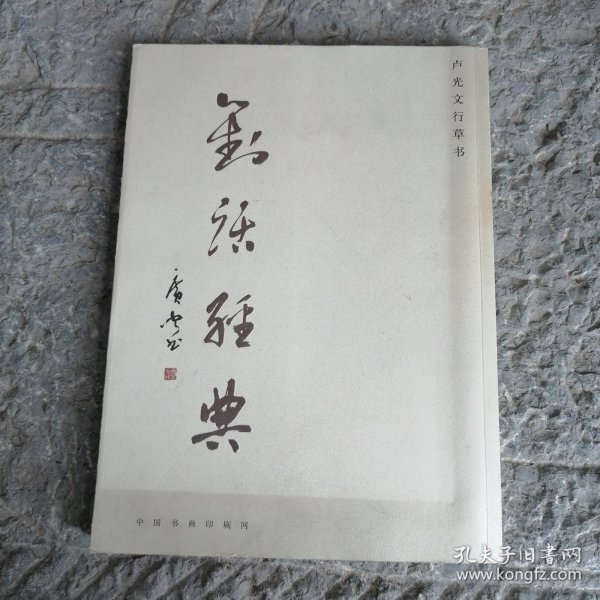 卢光文行草书
對话經典
中国书画印刷网
孔夫子旧书网
www.kongfz.com